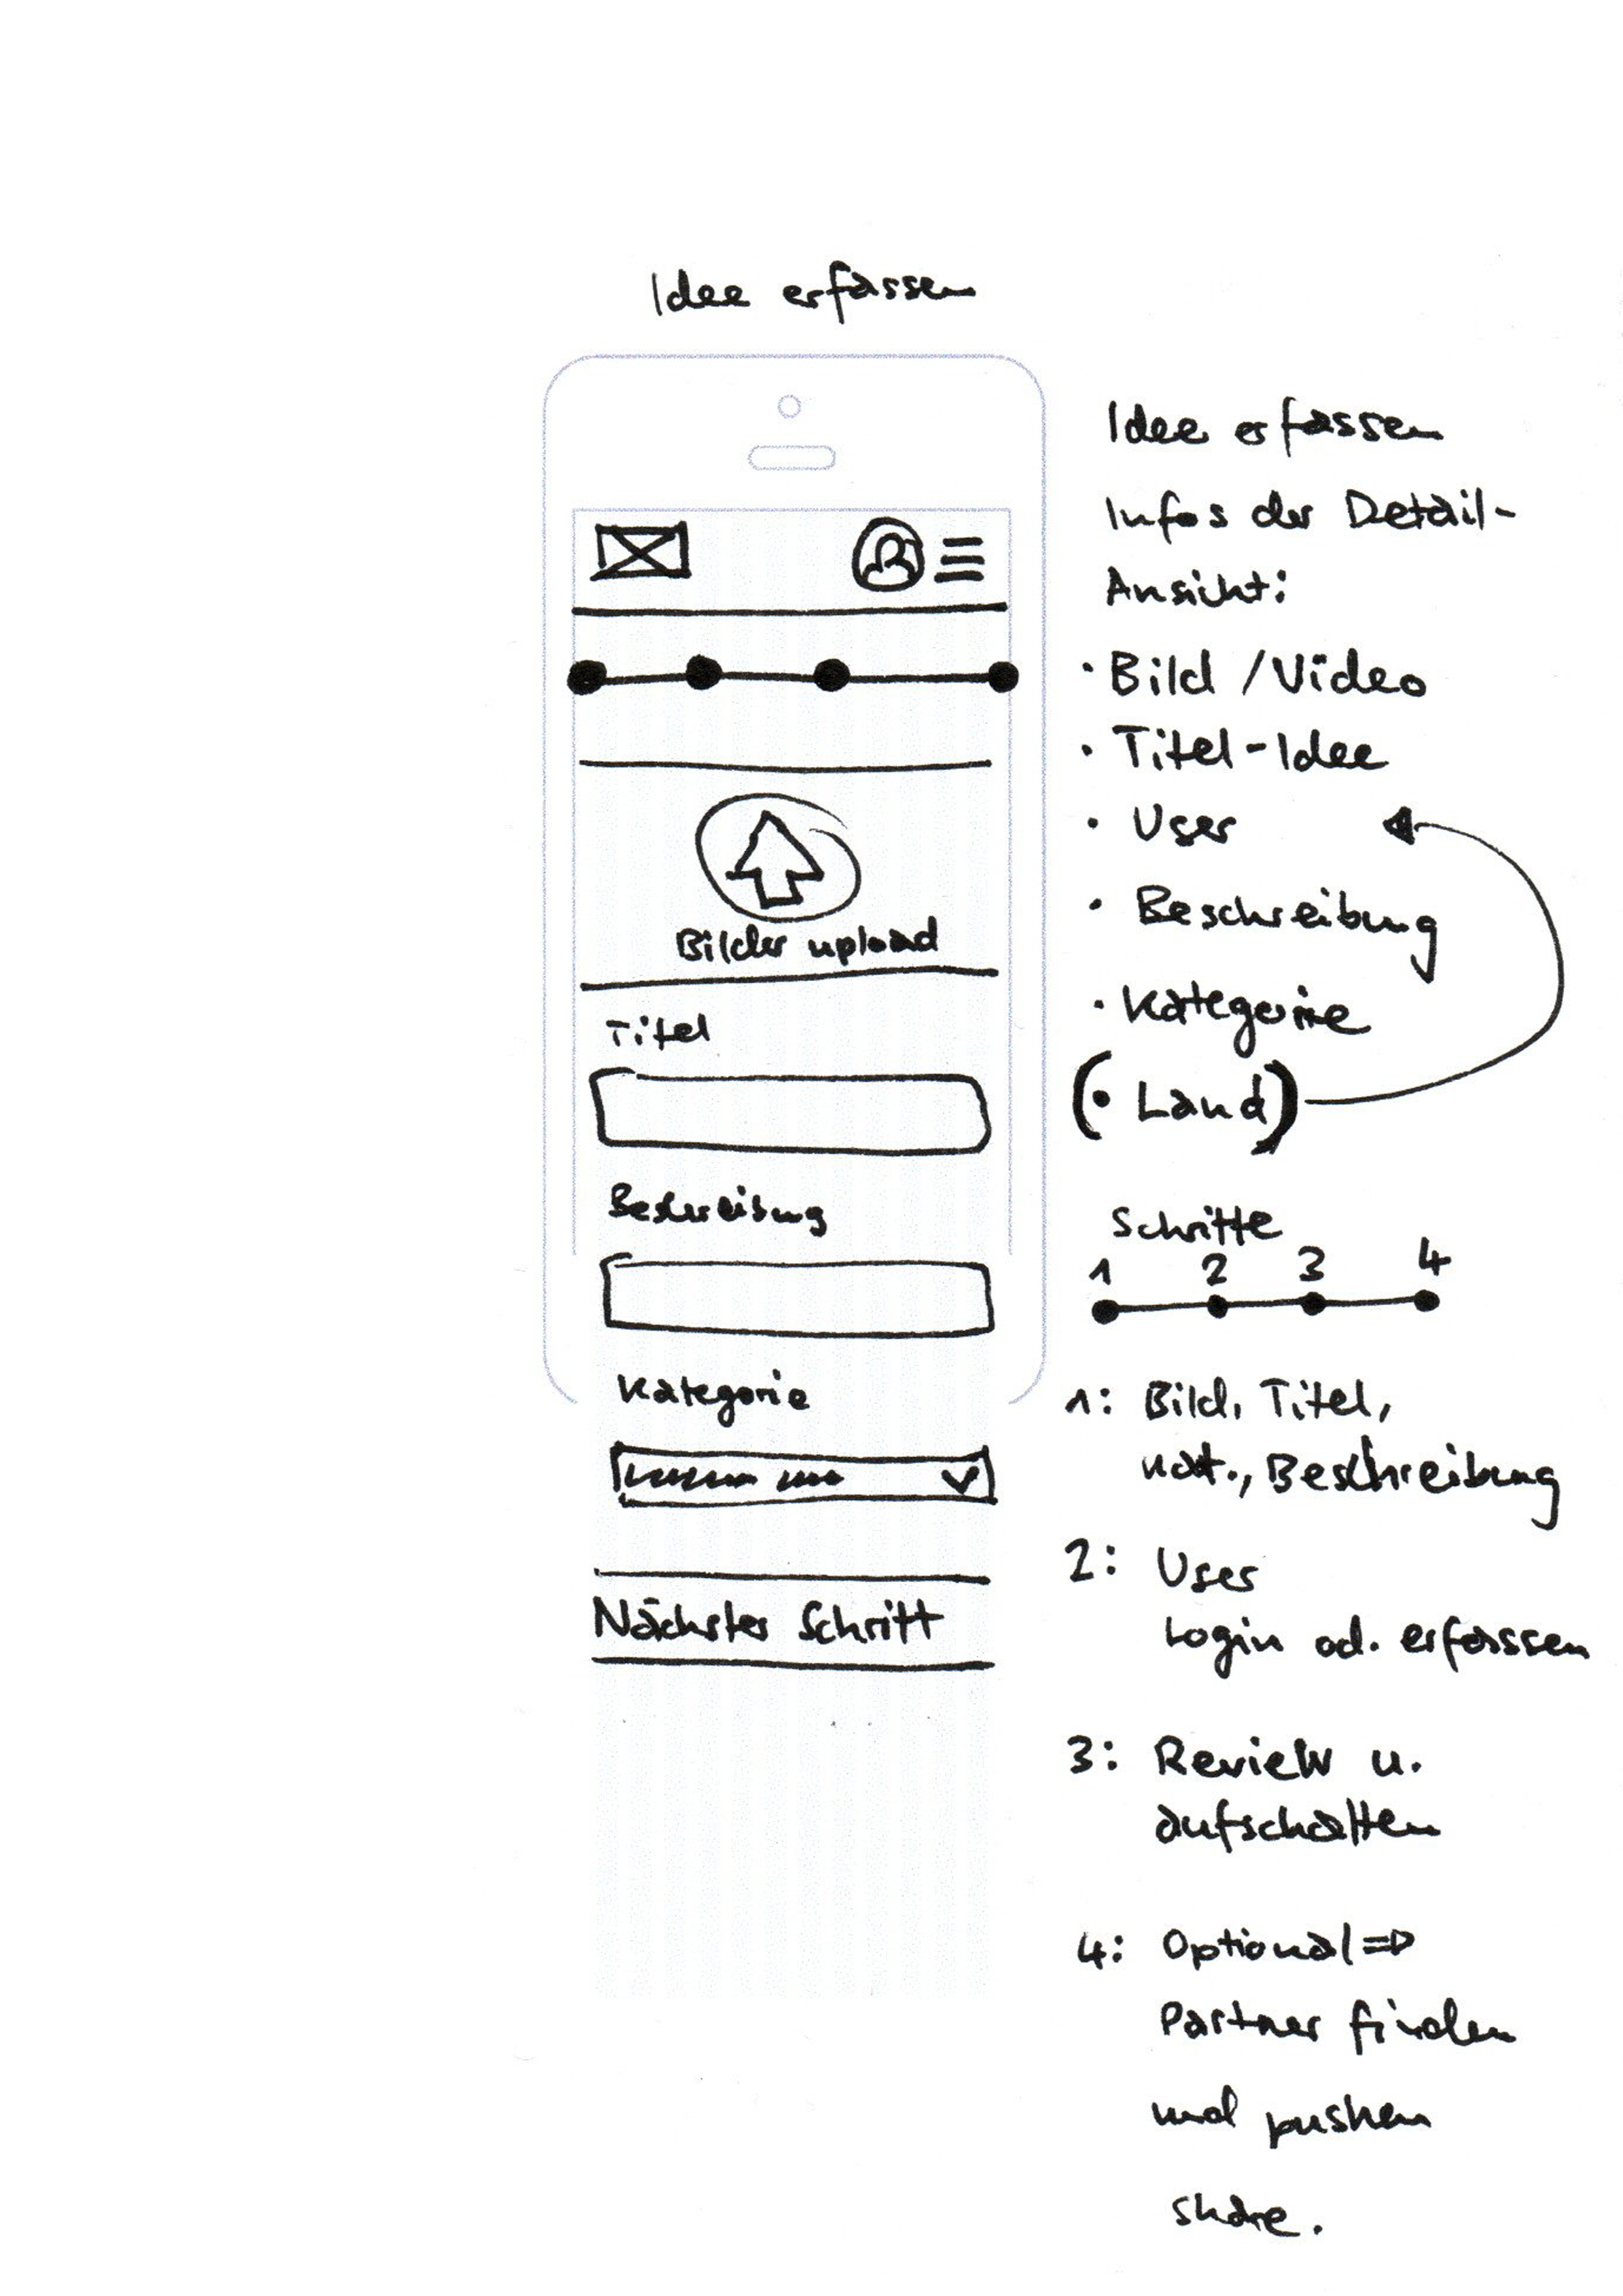 Idee erfassen
Bilder upload
Titel
Beschreibung
Kategorie
Nächster Schritt
Idee erfassen
Infos der Detail-
Ansicht:
· Bild / Video
· Titel-Idee
· User
· Beschreibung
· Kategorie
(· Land)
Schritte
1 2 3 4
1: Bild, Titel,
Kat., Beschreibung
2: User
Login od. erfassen
3: Review u.
aufschalten
4: Optional =>
Partner finden
und pushen
share.